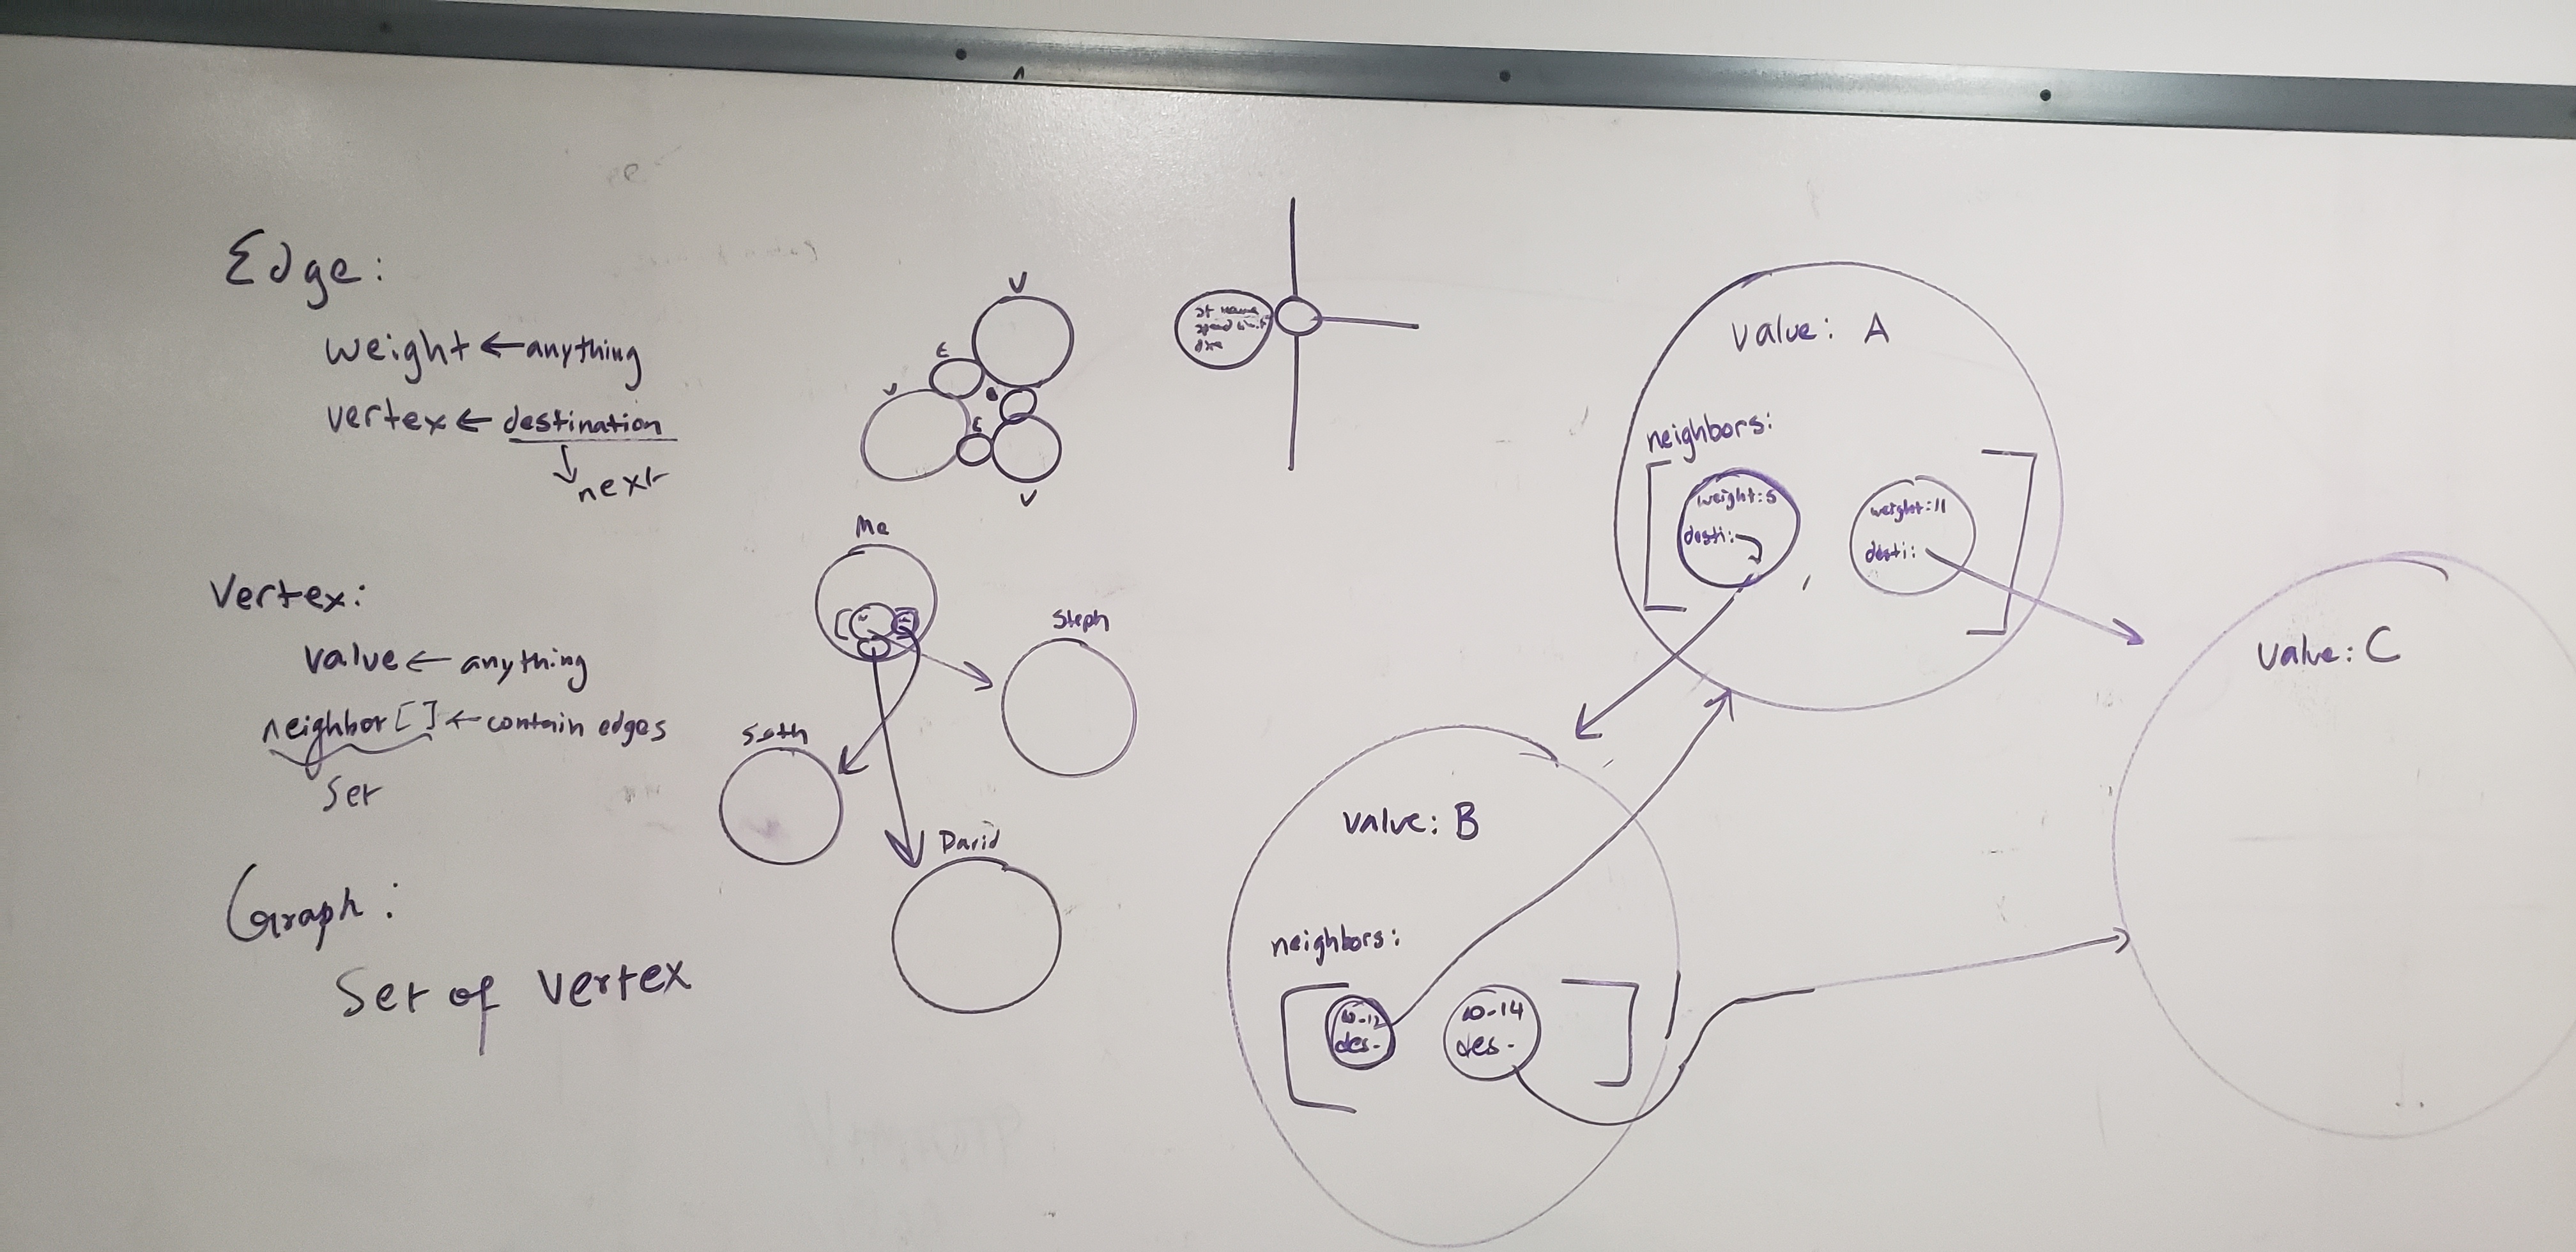 Edge:
weight ← anything
vertex ← destination
↓ next
Vertex:
value ← anything
neighbor [ ] ← contain edges
Set
Graph:
Set of Vertex
V
E
V
E
V
st name
speed limit
Me
Steph
Seth
David
value: A
neighbors:
[
weight: 5
desti:
,
weight: 11
desti:
]
value: B
neighbors:
[
10-12
des-
10-14
des-
]
value: C